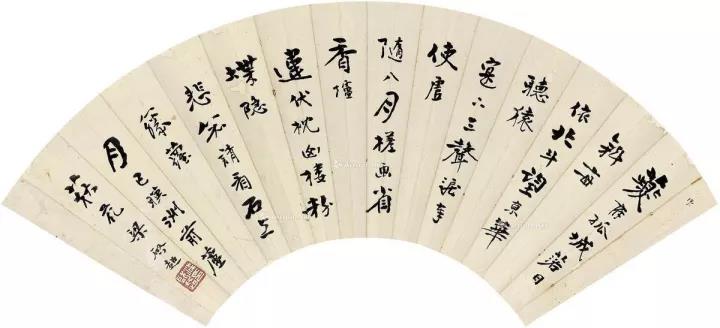 夔府孤城落日
斜每
依北斗望京華
聽猿
寔下三聲淚奉
使虛
隨八月槎画省
香爐
違伏枕山樓粉
堞隱
悲笳請看石上
藤蘿
月已暎洲前蘆
荻花 梁啟超